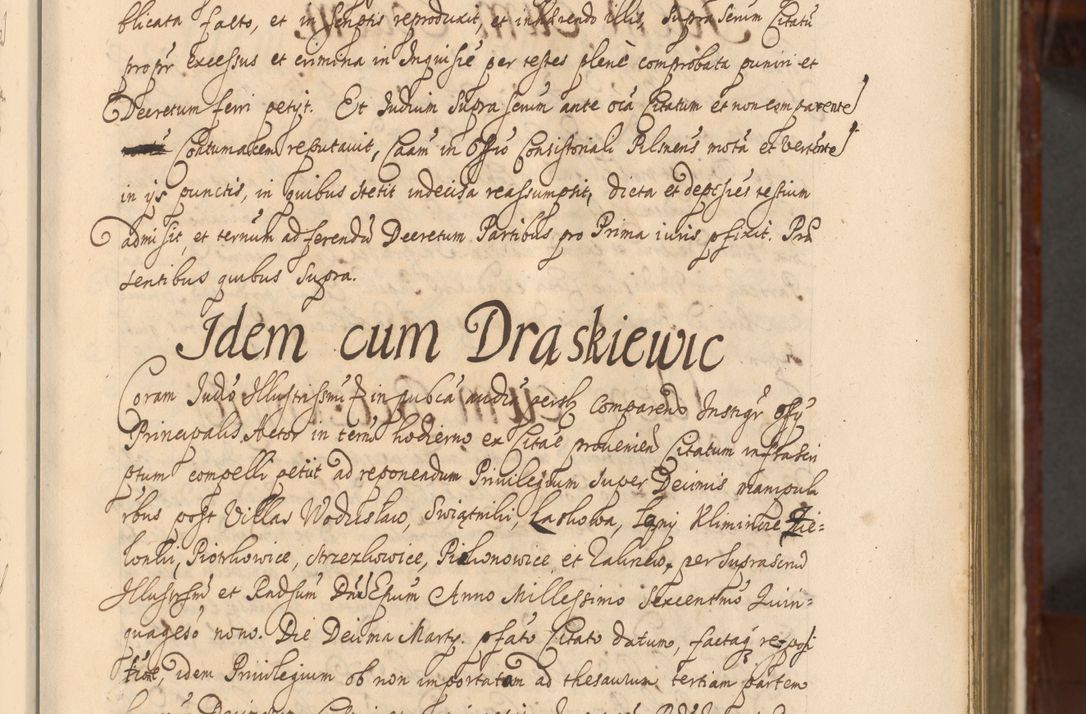 blicata facto, et in scriptis reproduxit, et inhærendo illis, Supra Scrum Citatũ
propr excessus et crimina in Inquisiẽ per testes plenè comprobata puniri et
Decretum ferri petyt. Et Judium Supra scrum ante oĩa Citatum et non comparente
Contumacem reputavit, Caam in Offio Consistoriali Pilsneñs motã et vertente
in ys punctis, in quibus stetit indecisa reassumpsit, dicta et deposies testium
admisit et ternum ad ferendũ Decretum Partibus pro Prima iuris pfixit. Præ
sentibus quibus supra.
Idem cum Draskiewic
Coram Judõ Illustrissmi in pubca audiẽ persl Comparendo Instigr offy
Principalis Actor in termõ hodierno ex Citaẽ provenieñ Citatum infrascri
ptum compelli petiit ad reponendum Privilegium super Decimis manipula
ribus post Villas Wodzislaw, Swiątniki, Laskowa, Łany Kliminice Zie=
lonki, Piotrkowice, Strzezkowice, Pikonowice et per suprascrũ
Illustrsm̃ et Rndssum Dnũ Epum Anno Millessimo Sexcentmõ Quin=
quagesõ nono. Die Decima Martÿ. pfato Citato datum, factaq reposi
tione, idem Privilegium ob non importatam ad thesaurum tertiam partem